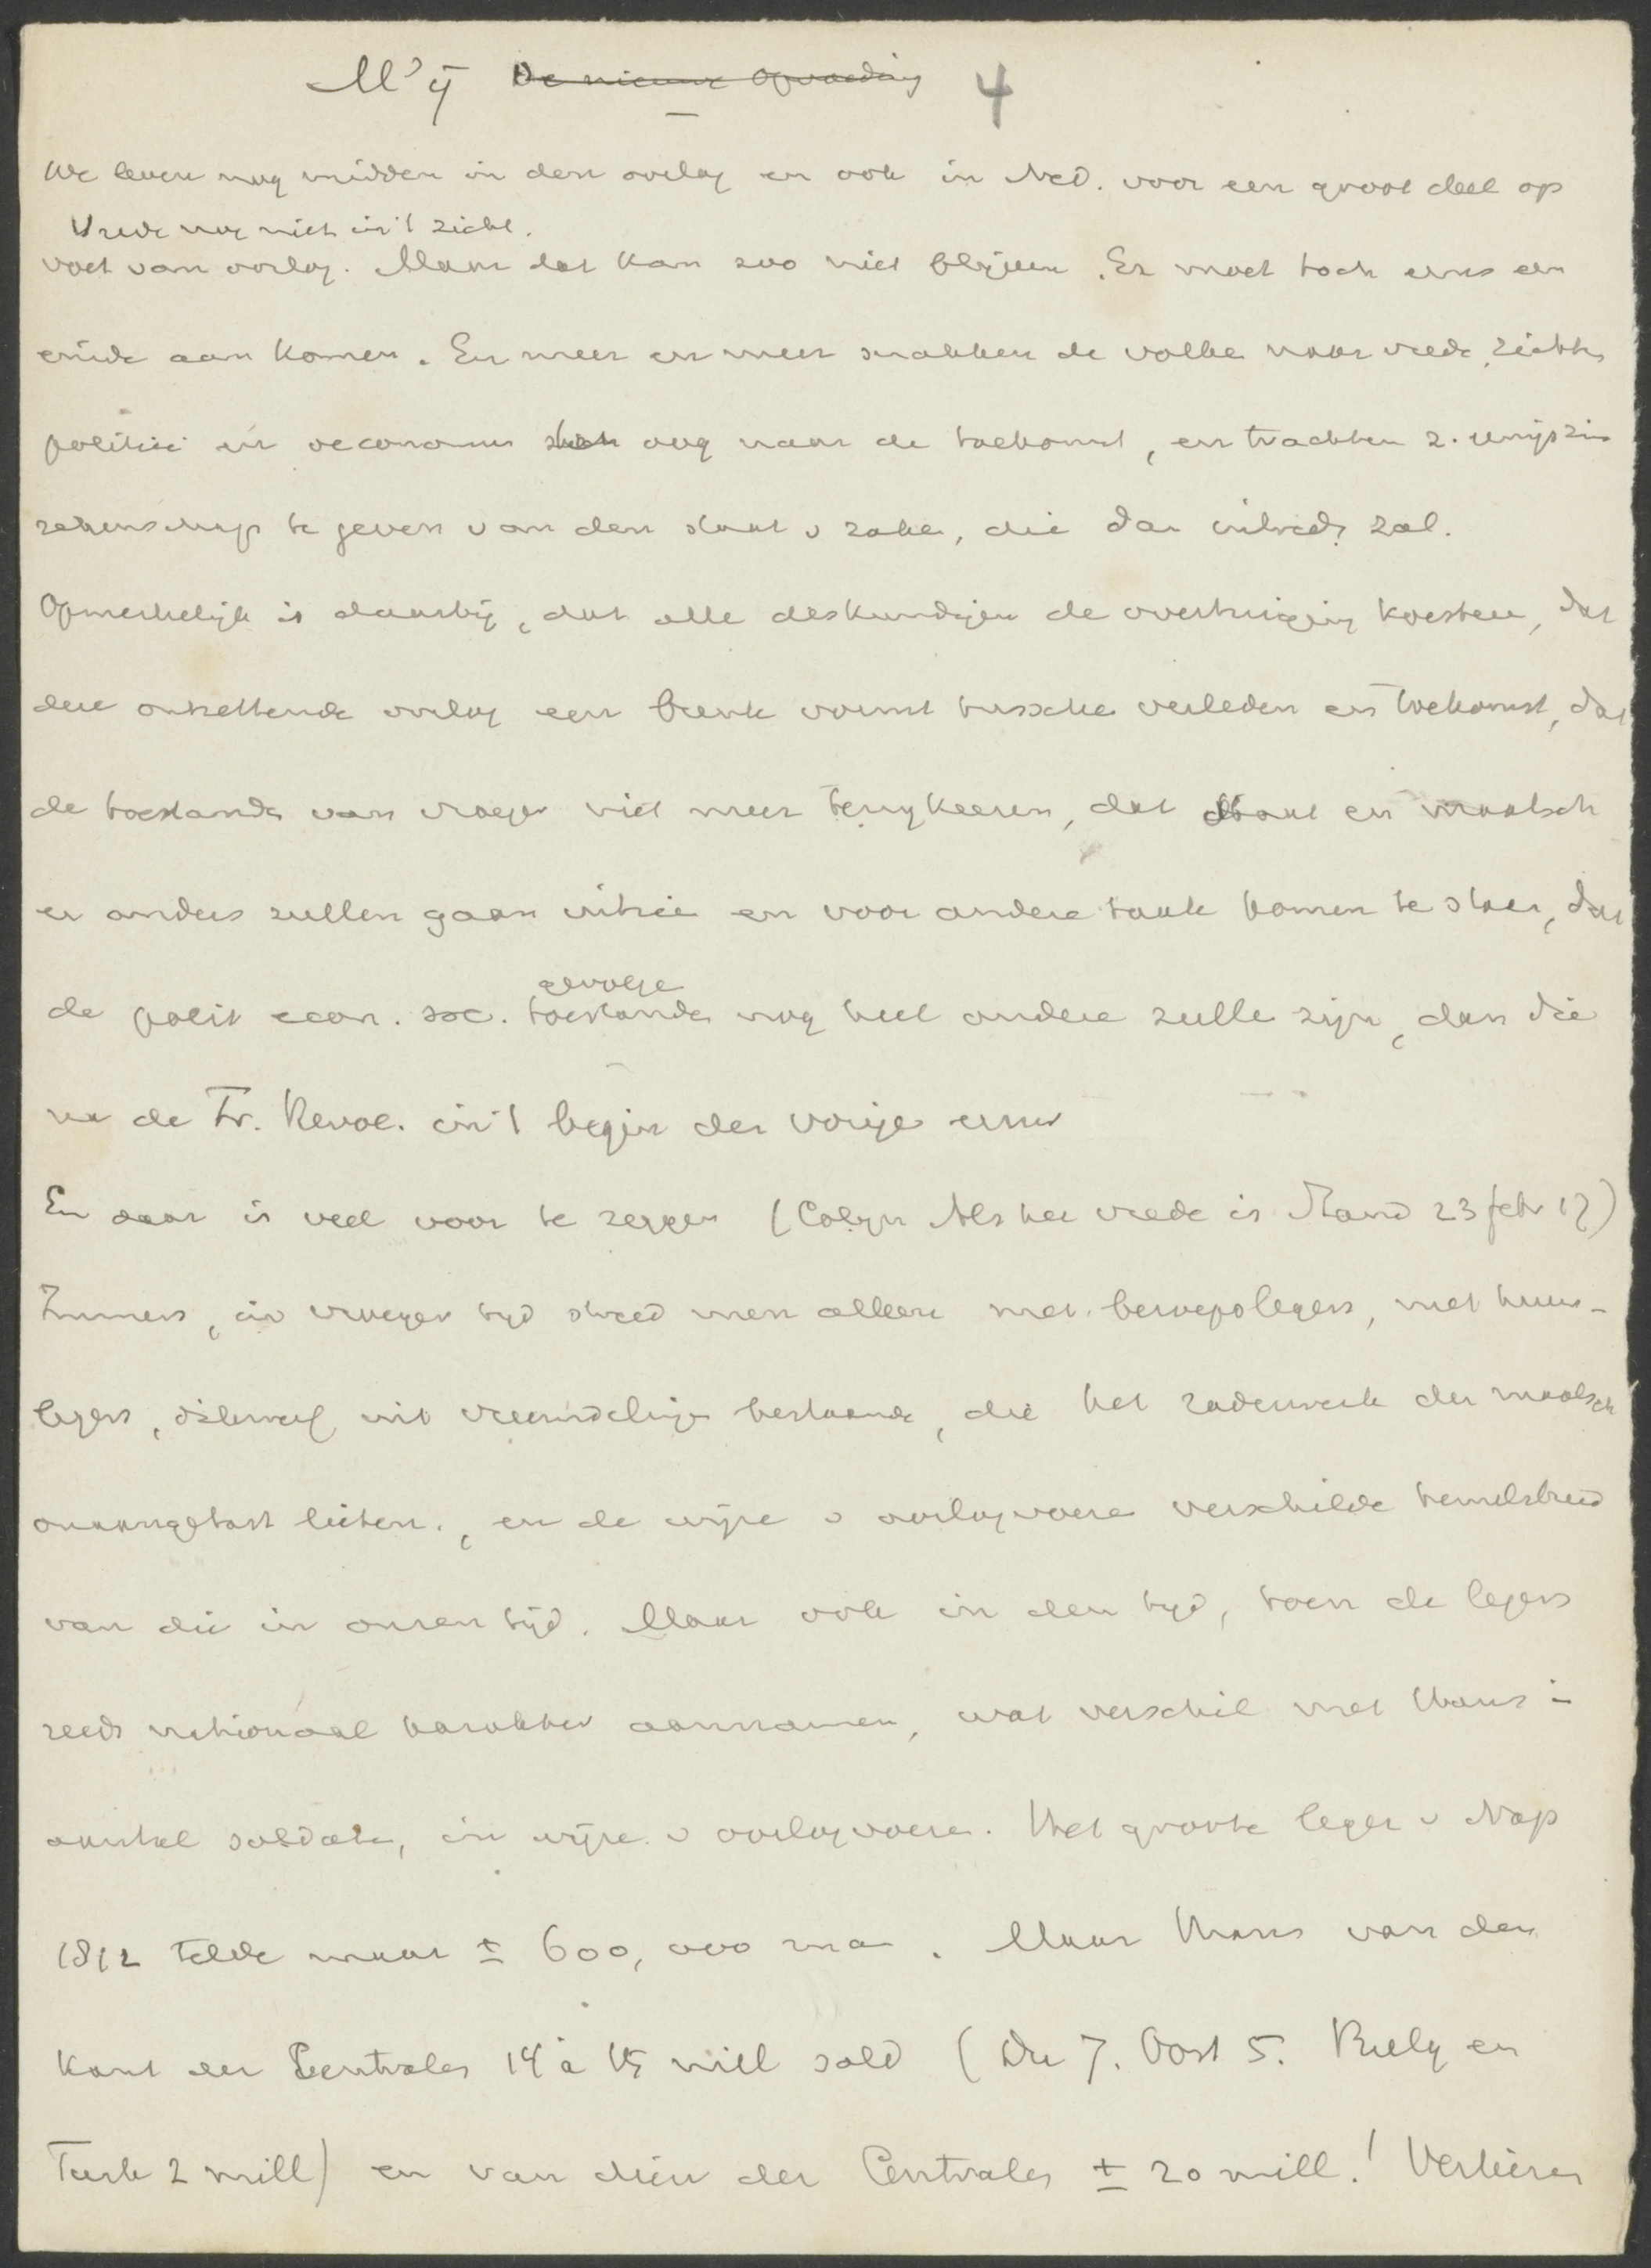 M'ij De nieuwe opvoeding 4
We leven nog midden in den oorlog en ook in Ned. voor een groot deel op
Vrede nog niet in 't zicht.
voet van oorlog. Maar dat kan zoo niet blijven. Er moet toch eens een
einde aan komen. En meer en meer snakken de volke naar vrede, richten
politici en oeconomen oog naar de toekomst, en trachten z. enigszins
rekenschap te geven van den staat v zaken, die dan intreden zal.
Opmerkelijk is daarbij, dat alle deskundigen de overtuiging koesteren, dat
deze ontzettende oorlog een breuk vormt tussche verleden en toekomst, dat
de toestande van vroeger niet meer terugkeeren, dat Staat en maatsch
er anders zullen gaan uitzie en voor andere taak komen te staan, dat
gevolge
de polit econ. soc. toestande nog heel andere zulle zijn, dan die
na de Fr. Revol. in 't begin der vorige eeuw
En daar is veel voor te zeggen (Colijn Als het vrede is Stand 23 febr 17)
Immers, in vroeger tijd streed men alleen met beroepslegers, met huur-
legers, dikwerf uit vreemdelinge bestaande, die het raderwerk der maatsch
onaangetast lieten., en de wijze v oorlogvoere verschilde hemelsbreed
van die in onzen tijd. Maar ook in den tijd, toen de legers
reeds nationaal karakter aannamen, wat verschil met thans in
aantal soldate, in wijze v oorlogvoere. Het groote leger v Nap
1812 telde maar ± 600,000 ma. Maar thans van den
kant der Centrales 14 à 15 mill sold (Du 7. Oost 5. Bulg en
Turk 2 mill) en van dien der Centrales ± 20 mill.! Verliezen